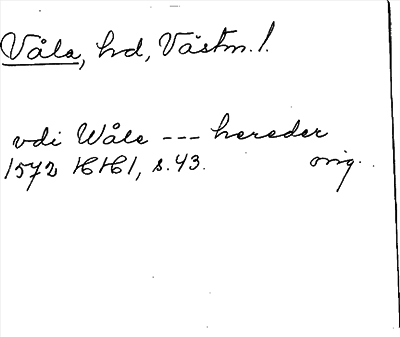 Våla, hd, Västm. l.
vdi Wåle --- hereder
1572 HH1, s. 43. orig.